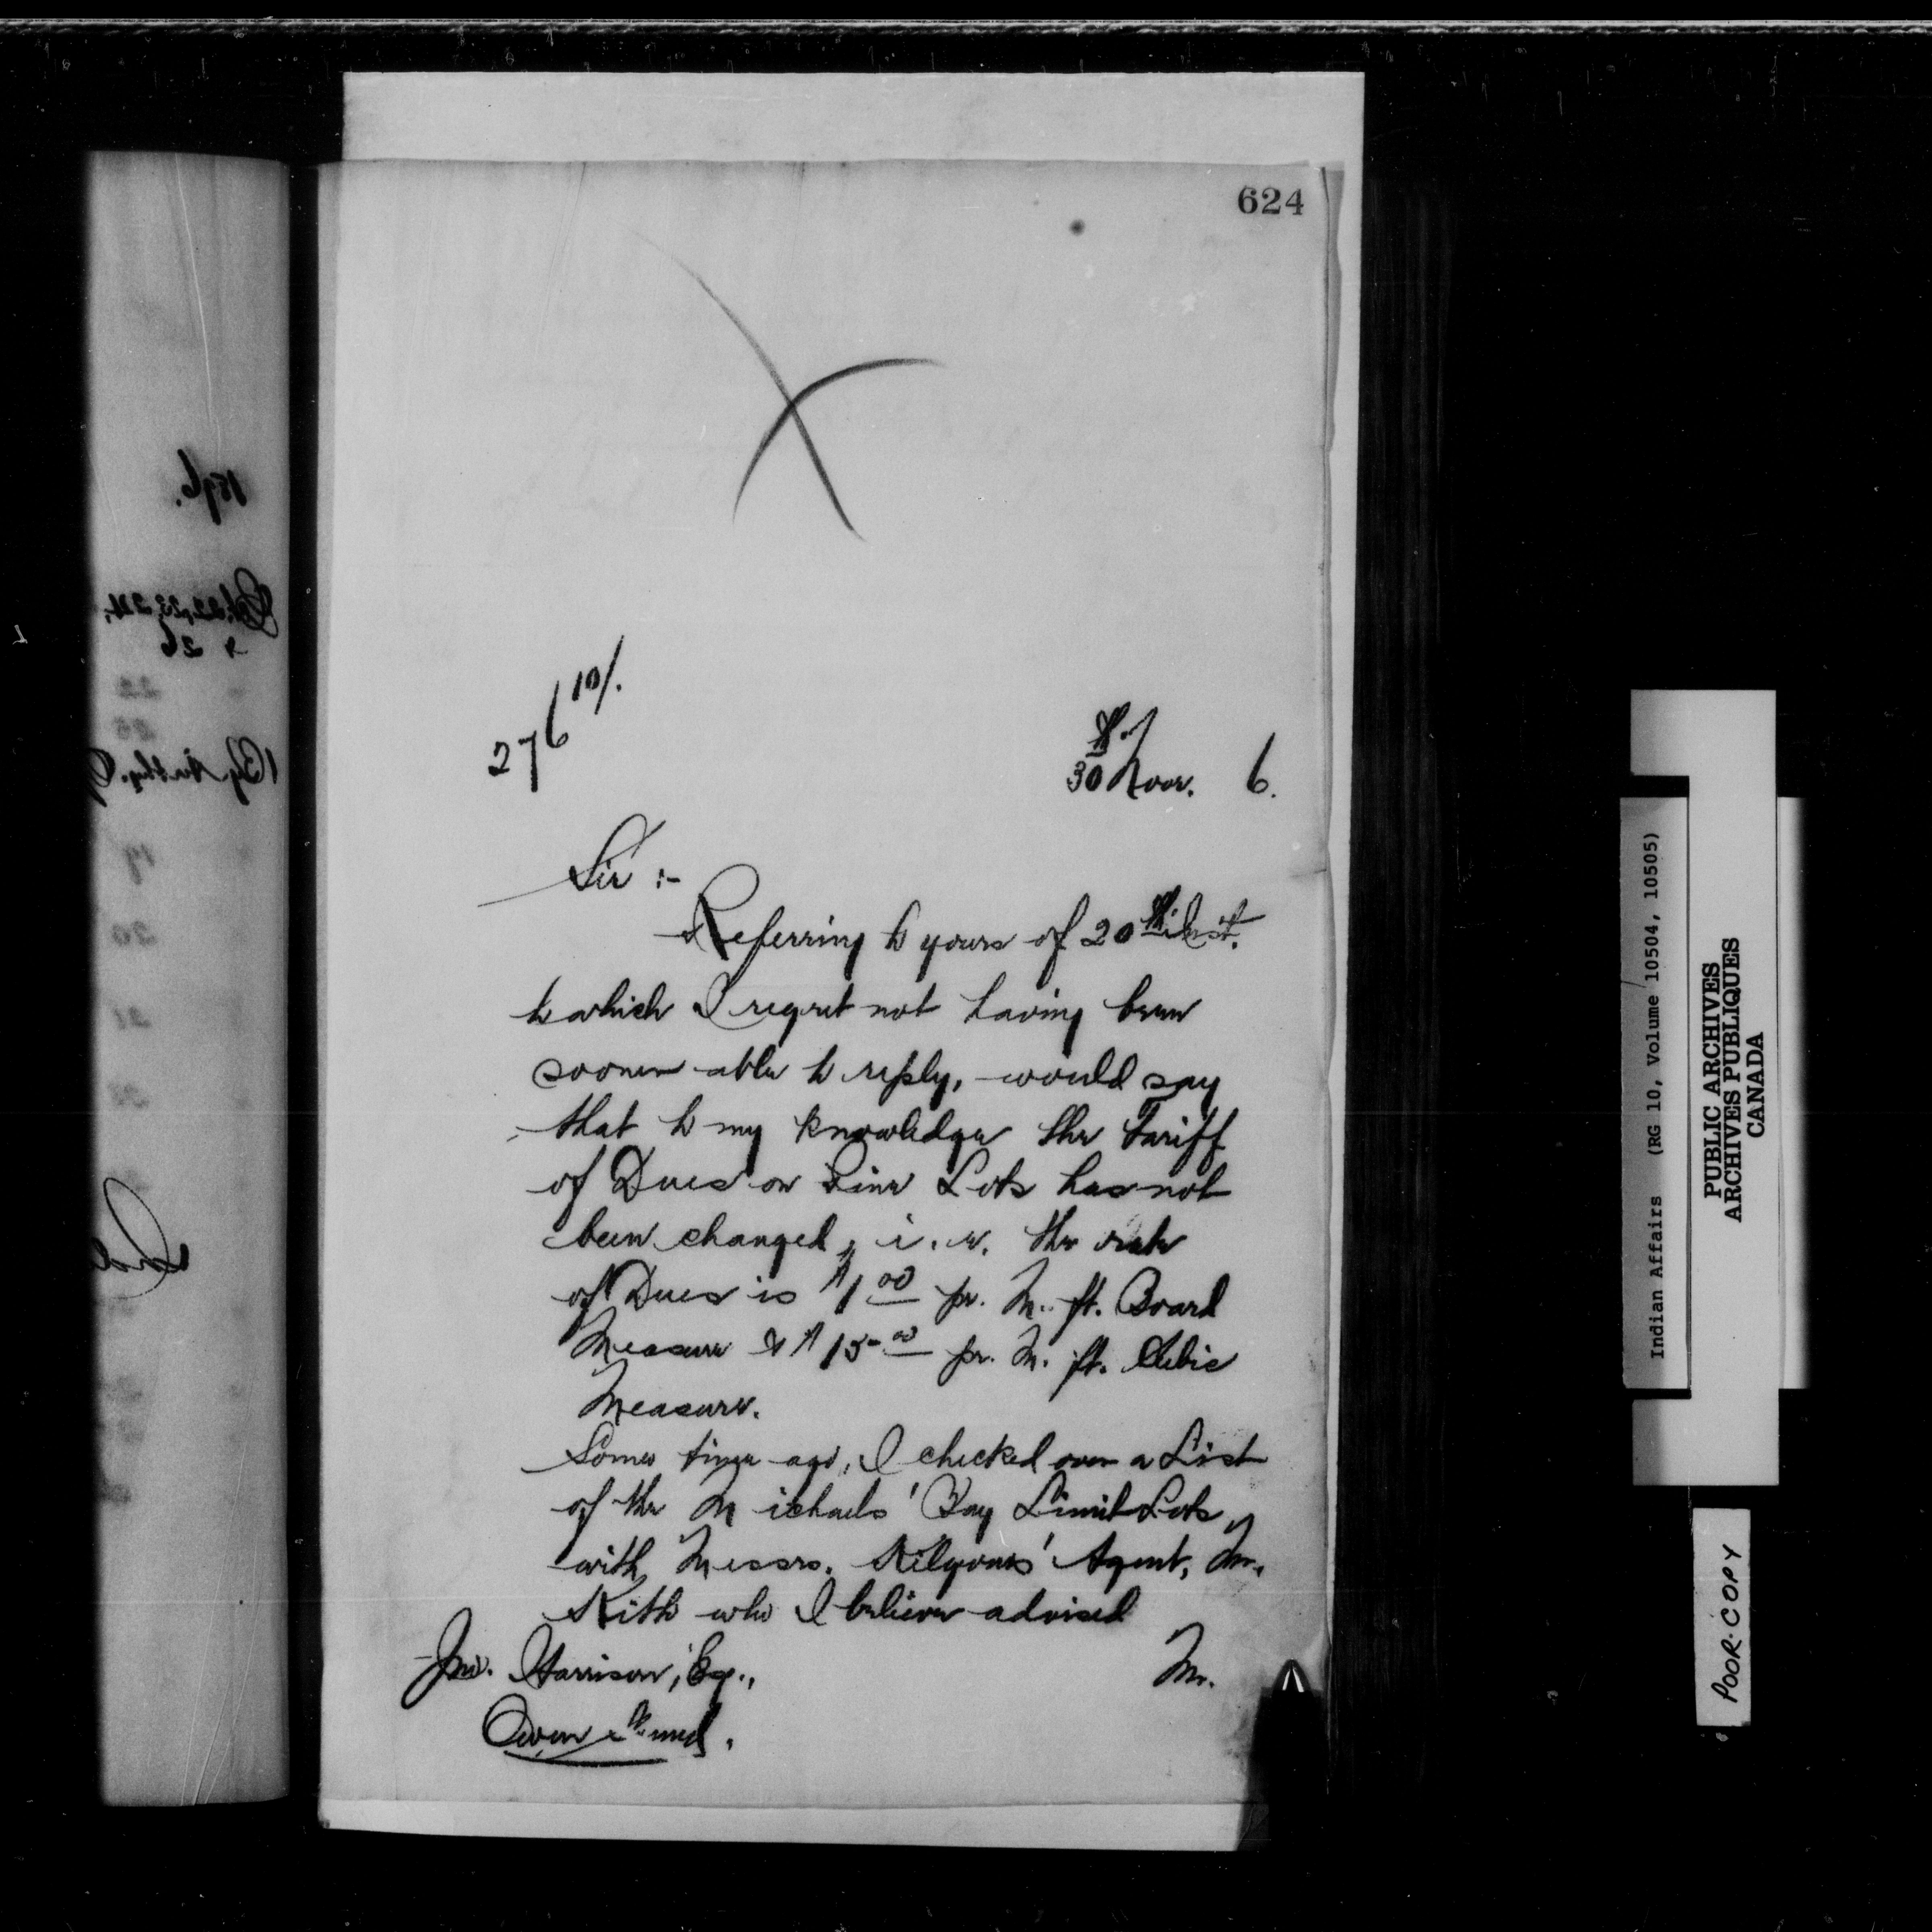 624
276 10/.
30th Novr. 6.
Sir :-
Referring to yours of 20th inst.
to which I regret not having been
sooner able to reply, would say
that to my knowledge the Tariff
of Dues on Pine Lots has not
been changed, i. e. the rate
of Dues is $1 00 pr. M. ft. Board
Measure & $15 00 pr. M. ft. Cubic
Measure.
Some time ago, I checked over a List
of the Michaels' Bay Limit Lots
with Messrs. Kilgours' Agent, Mr.
Keith who I believe advised
Mr.
Jno. Harrison, Esq.,
Owen Sound.
1896.
Oct. 22, 23, 24,
& 26
22
25
19
20
21
Indian Affairs (RG 10, Volume 10504, 10505)
PUBLIC ARCHIVES
ARCHIVES PUBLIQUES
CANADA
POOR COPY